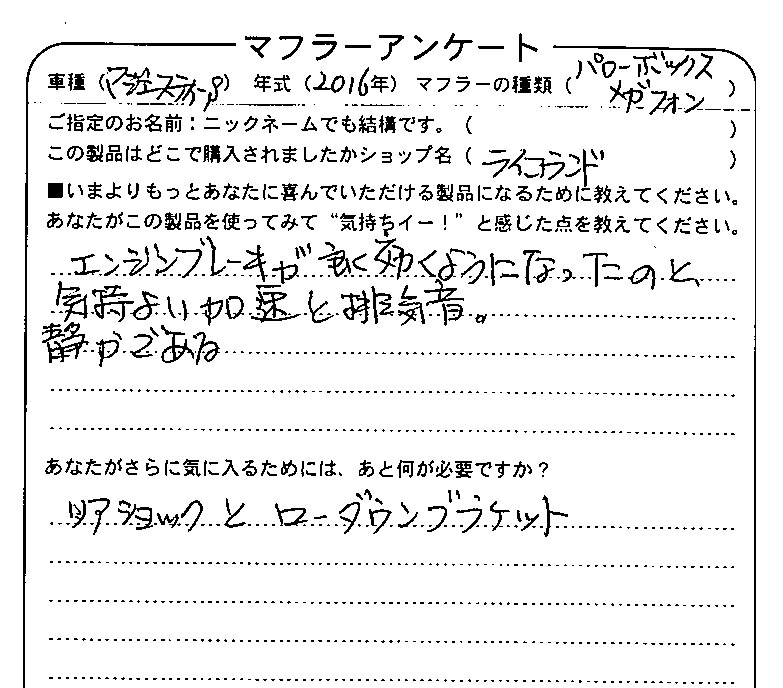 マフラーアンケート
車種（マジェスティーS）年式（2016年）マフラーの種類（パワーボックス
メガフォン）
ご指定のお名前：ニックネームでも結構です。（ ）
この製品はどこで購入されましたかショップ名（ライコランド）
■いまよりもっとあなたに喜んでいただける製品になるために教えてください。
あなたがこの製品を使ってみて“気持ちイー！”と感じた点を教えてください。
エンジンブレーキが良く効くようになったのと、
気持よい加速と排気音。
静かである
あなたがさらに気に入るためには、あと何が必要ですか？
リアショックとローダウンブラケット